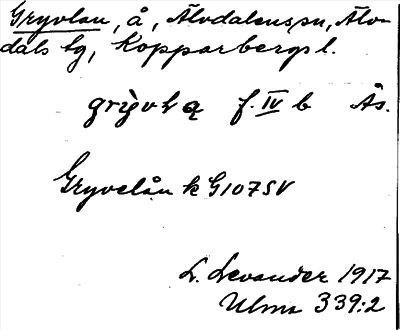 Gryvlan, å, Älvdalens sn, Älv-
dals tg, Kopparbergs l.
f. IV b Ås.
Gryvelån k G107SV
L. Levander 1917
Ulma 339:2